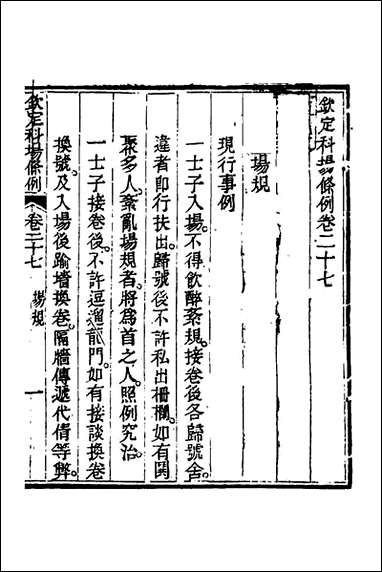 欽定科場條例卷二十七
場規
現行事例
一士子入場。不得飲醉紊規。接卷後各歸號舍。
違者卽行扶出。歸號後不許私出柵欄。如有閧
聚多人。紊亂場規者。將爲首之人。照例究治。
一士子接卷後。不許逗遛龍門。如有接談換卷
換號。及入場後踰墻換卷。隔牆傳遞代倩等弊。
欽定科場條例 卷二十七 場規 一